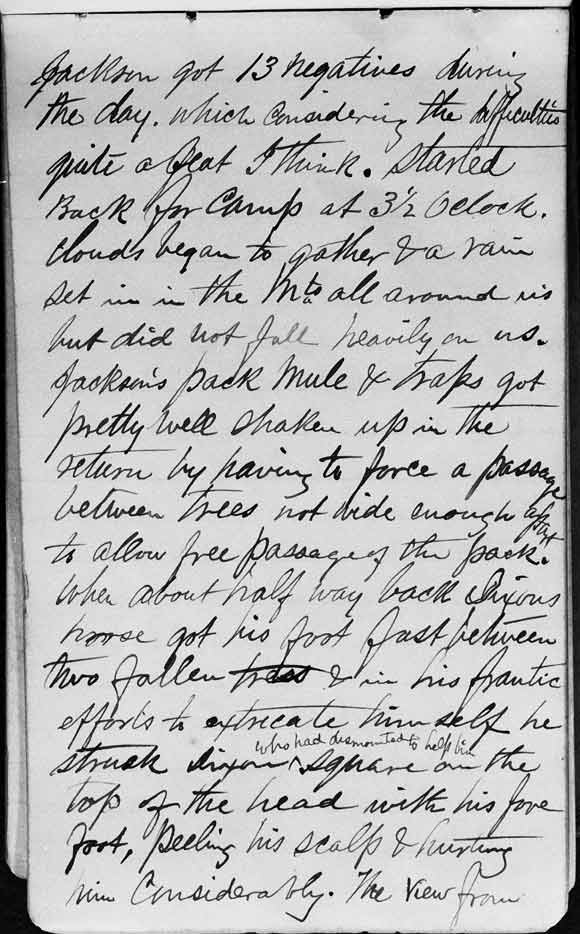 Jackson got 13 negatives during
the day. which considering the difficulties
quite a feat I think. Started
Back for Camp at 3½ Oclock.
Clouds began to gather & a rain
set in in the Mts all around us
but did not fall heavily on us.
Jackson's pack Mule & traps got
pretty well shaken up in the
return by having to force a passage
between trees not wide enough apart
to allow free passage of the pack.
When about half way back Dixons
horse got his foot fast between
two fallen trees & in his frantic
efforts to extricate himself he
who had dismounted to help him
struck Dixon ^ square on the
top of the head with his fore
foot, peeling his scalp & hurting
him Considerably. The View from